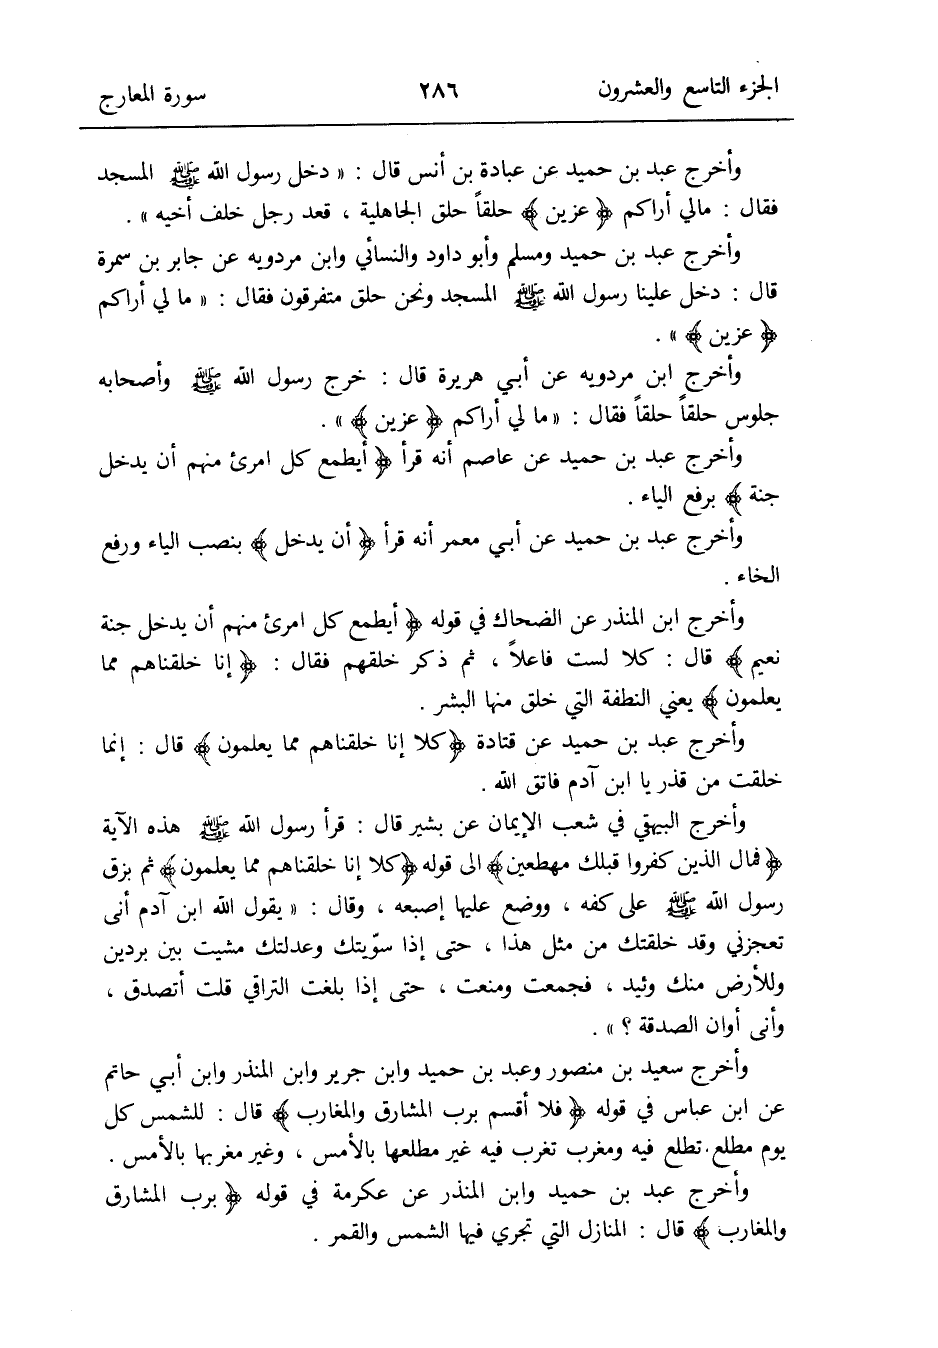 الجزء التاسع والعشرون ٢٨٦ سورة المعارج
وأخرج عبد بن حميد عن عبادة بن أنس قال : « دخل رسول الله ﷺ المسجد
فقال : مالي أراكم ﴿ عزين ﴾ حلقاً حلق الجاهلية ، قعد رجل خلف أخيه » .
وأخرج عبد بن حميد ومسلم وأبو داود والنسائي وابن مردويه عن جابر بن سمرة
قال : دخل علينا رسول الله ﷺ المسجد ونحن حلق متفرقون فقال : « ما لي أراكم
﴿ عزين ﴾ » .
وأخرج ابن مردويه عن أبي هريرة قال : خرج رسول الله ﷺ وأصحابه
جلوس حلقاً حلقاً فقال : « ما لي أراكم ﴿ عزين ﴾ » .
وأخرج عبد بن حميد عن عاصم أنه قرأ ﴿ أيطمع كل امرئ منهم أن يدخل
جنة ﴾ برفع الياء .
وأخرج عبد بن حميد عن أبي معمر أنه قرأ ﴿ أن يدخل ﴾ بنصب الياء ورفع
الخاء .
وأخرج ابن المنذر عن الضحاك في قوله ﴿ أيطمع كل امرئ منهم أن يدخل جنة
نعيم ﴾ قال : كلا لست فاعلاً ، ثم ذكر خلقهم فقال : ﴿ إنا خلقناهم مما
يعلمون ﴾ يعني النطفة التي خلق منها البشر .
وأخرج عبد بن حميد عن قتادة ﴿كلا إنا خلقناهم مما يعلمون ﴾ قال : إنما
خلقت من قذر يا ابن آدم فاتق الله .
وأخرج البيهقي في شعب الإيمان عن بشير قال : قرأ رسول الله ﷺ هذه الآية
﴿ فمال الذين كفروا قبلك مهطعين﴾ الى قوله ﴿كلا إنا خلقناهم مما يعلمون﴾ ثم بزق
رسول الله ﷺ على كفه ، ووضع عليها إصبعه ، وقال : « يقول الله ابن آدم أنى
تعجزني وقد خلقتك من مثل هذا ، حتى إذا سوّيتك وعدلتك مشيت بين بردين
وللأرض منك وئيد ، فجمعت ومنعت ، حتى إذا بلغت التراقي قلت أتصدق ،
وأنى أوان الصدقة ؟ » .
وأخرج سعيد بن منصور وعبد بن حميد وابن جرير وابن المنذر وابن أبي حاتم
عن ابن عباس في قوله ﴿ فلا أقسم برب المشارق والمغارب ﴾ قال : للشمس كل
يوم مطلع تطلع فيه ومغرب تغرب فيه غير مطلعها بالأمس ، وغير مغربها بالأمس .
وأخرج عبد بن حميد وابن المنذر عن عكرمة في قوله ﴿ برب المشارق
والمغارب ﴾ قال : المنازل التي تجري فيها الشمس والقمر .